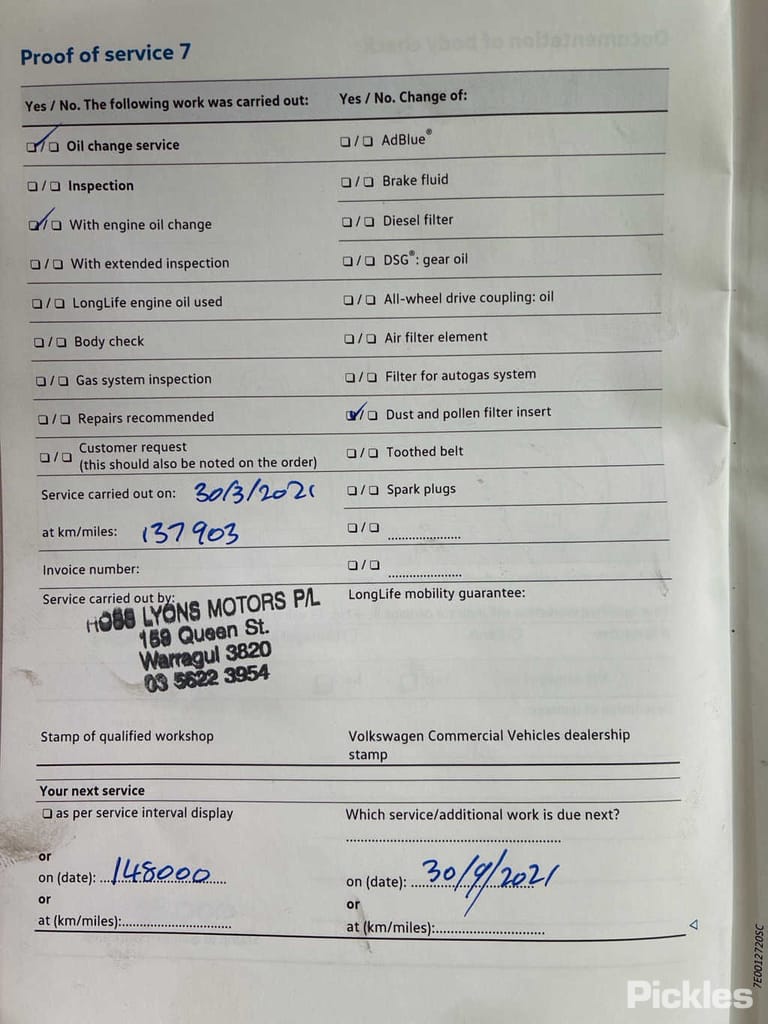 Proof of service 7
Yes / No. The following work was carried out:
☑/☐ Oil change service
☐/☐ Inspection
☑/☐ With engine oil change
☐/☐ With extended inspection
☐/☐ LongLife engine oil used
☐/☐ Body check
☐/☐ Gas system inspection
☐/☐ Repairs recommended
☐/☐ Customer request
(this should also be noted on the order)
Service carried out on: 30/3/2021
at km/miles: 137903
Invoice number:
Service carried out by:
LYONS MOTORS P/L
159 Queen St.
Warragul 3820
03 5622 3954
Stamp of qualified workshop
Yes / No. Change of:
☐/☐ AdBlue®
☐/☐ Brake fluid
☐/☐ Diesel filter
☐/☐ DSG®: gear oil
☐/☐ All-wheel drive coupling: oil
☐/☐ Air filter element
☐/☐ Filter for autogas system
☑/☐ Dust and pollen filter insert
☐/☐ Toothed belt
☐/☐ Spark plugs
☐/☐ ....................
☐/☐ ....................
LongLife mobility guarantee:
Volkswagen Commercial Vehicles dealership
stamp
Your next service
☐ as per service interval display
or
on (date): 148000
or
at (km/miles):..............................
Which service/additional work is due next?
............................................................
on (date): 30/9/2021
or
at (km/miles):..............................
7E0012720SC
Pickles